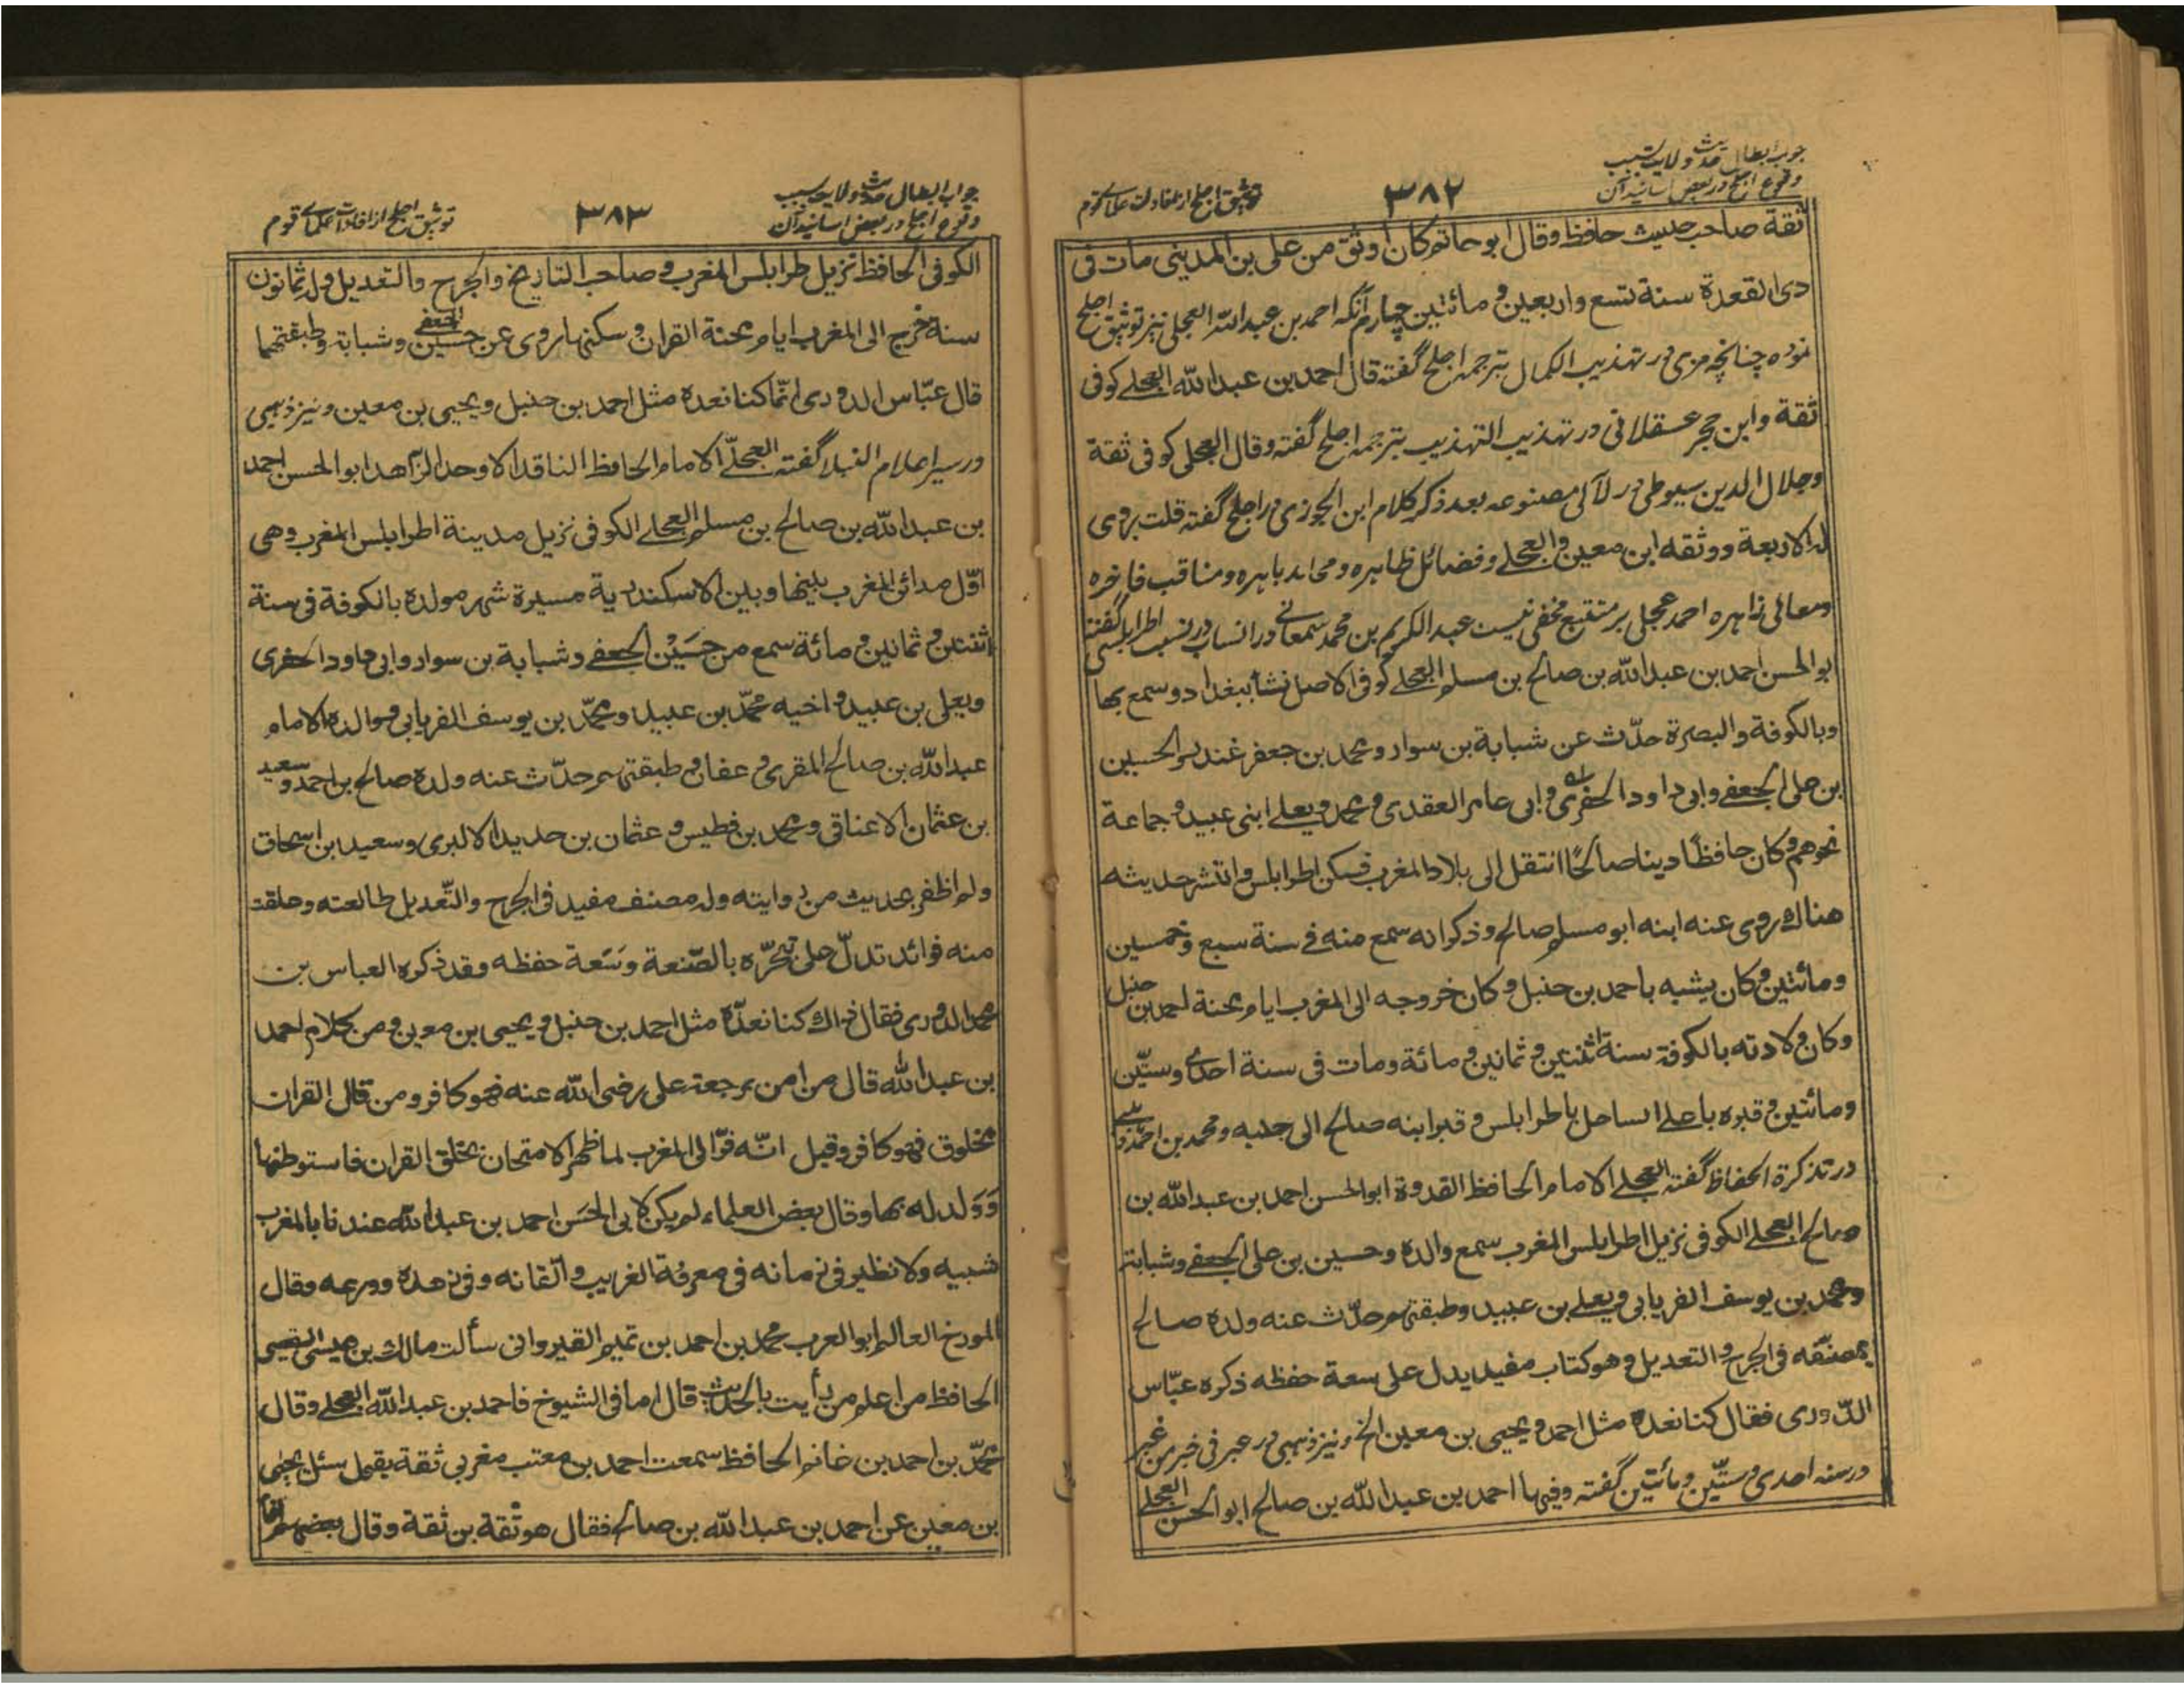 جواب ابطال حدیث ولایت بسبب
وقوع اجلح در بعض اسانید آن
٣٨٢
توثیق اجلح از افادات علمای قوم
ثقة صاحب حدیث حافظ وقال ابوحاتم کان اوثق من علی بن المدینی مات فی
ذی القعدة سنة تسع واربعین و مائتین چهارم آنکه احمد بن عبدالله العجلی نیز توثیق اجلح
نموده چنانچه مزی در تهذیب الکمال بترجمه اجلح گفته قال احمد بن عبدالله العجلے کوفی
ثقة وابن حجر عسقلانی در تهذیب التهذیب بترجمه اجلح گفته وقال العجلی کوفی ثقة
وجلال الدین سیوطی در لآلی مصنوعه بعد ذکر کلام ابن الجوزی در اجلح گفته قلت روی
له الاربعة ووثقه ابن معین والعجلے وفضائل ظاهره ومحامد باهره ومناقب فاخره
ومعالی زاهره احمد عجلی بر متتبع مخفی نیست عبدالکریم بن محمد سمعانے در انساب در نسب اطرابلسی گفته
ابوالحسن احمد بن عبدالله بن صالح بن مسلم العجلے کوفی الاصل نشأ ببغداد وسمع بها
وبالکوفة والبصرة حدّث عن شبابة بن سوار ومحمد بن جعفر غندر والحسین
بن علی الجعفے وابی داود الحفری وابی عامر العقدی ومحمد ویعلے ابنی عبید وجماعة
نحوهم وکان حافظًا دینا صالحًا انتقل الی بلاد المغرب فسکن اطرابلس وانتشر حدیثه
هناك روی عنه ابنه ابو مسلم صالح وذکر انه سمع منه فی سنة سبع وخمسین
ومائتین وکان یشبه باحمد بن حنبل وکان خروجه الی المغرب ایام محنة احمد بن حنبل
وکان ولادته بالکوفة سنة اثنتین وثمانین ومائة ومات فی سنة احدی وستّین
ومائتین وقبره باعلے الساحل باطرابلس وقبر ابنه صالح الی جنبه ومحمد بن احمد ذهبی
در تذکرة الحفاظ گفته العجلے الامام الحافظ القدوة ابوالحسن احمد بن عبدالله بن
صالح العجلے الکوفی نزیل اطرابلس المغرب سمع والده وحسین بن علی الجعفے وشبابة
ومحمد بن یوسف الفریابی ویعلے بن عبید وطبقتهم حدّث عنه ولده صالح
بمصنّفه فی الجرح والتعدیل وهو کتاب مفید یدل علی سعة حفظه ذکره عبّاس
الدّوری فقال کنا نعده مثل احمد ویحیی بن معین الخ ونیز ذهبی در عبر فی خبر من غبر
در سنه احدی وستّین ومائتین گفته وفیها احمد بن عبدالله بن صالح ابوالحسن العجلے
جواب ابطال حدیث ولایت بسبب
وقوع اجلح در بعض اسانید آن
٣٨٣
توثیق اجلح از افادات علمای قوم
الکوفی الحافظ نزیل طرابلس المغرب و صاحب التاریخ والجرح والتعدیل وله ثمانون
سنة خرج الی المغرب ایام محنة القران وسکنها روی عن حسین الجعفے وشبابة وطبقتهما
قال عبّاس الدوری انّما کنا نعده مثل احمد بن حنبل ویحیی بن معین ونیز ذهبی
در سیر اعلام النبلا گفته العجلیّ الامام الحافظ الناقد الاوحد الزاهد ابوالحسن احمد
بن عبدالله بن صالح بن مسلم العجلے الکوفی نزیل مدینة اطرابلس المغرب وهی
اوّل مدائن المغرب بینها وبین الاسکندریة مسیرة شهر مولده بالکوفة فی سنة
اثنتین وثمانین ومائة سمع من حسَیْن الجعفے وشبابة بن سوار وابی داود الحفری
ویعلی بن عبید واخیه محمّد بن عبید ومحمّد بن یوسف الفریابی ووالده الامام
عبدالله بن صالح المقری وعفان وطبقتهم حدّث عنه ولده صالح بن احمد وسعید
بن عثمان الاعناقی ومحمد بن فطیس وعثمان بن حدید الالبری وسعید بن اسحاق
ولم اظفر بحدیث من روایته وله مصنف مفید فی الجرح والتّعدیل طالعته وعلقت
منه فوائد تدلّ علی تبحّره بالصّنعة وسَعة حفظه وقد ذکره العباس بن
محمد الدوری فقال ذاك کنا نعدّه مثل احمد بن حنبل ویحیی بن معین ومن کلام احمد
بن عبدالله قال من امن برجعة علی رضی الله عنه فهو کافر ومن قال القران
مخلوق فهو کافر وقیل انّه فرّ الی المغرب لما ظهر الامتحان بخلق القران فاستوطنها
وَوَلد له بها وقال بعض العلماء لم یکن لابی الحَسَن احمد بن عبدالله عندنا بالمغرب
شبیه ولا نظیر فی زمانه فی معرفة الغریب واتقانه وفی زهده وورعه وقال
المورخ العالم ابوالعرب محمد بن احمد بن تمیم القیروانی سألت مالك بن عیسی القفصی
الحافظ من اعلم من رأیت بالحدیث قال اما فی الشیوخ فاحمد بن عبدالله العجلے وقال
محمّد بن احمد بن غانم الحافظ سمعت احمد بن معتب مغربی ثقة یقول سئل یحیٰی
بن معین عن احمد بن عبدالله بن صالح فقال هو ثقة بن ثقة وقال بعضهم